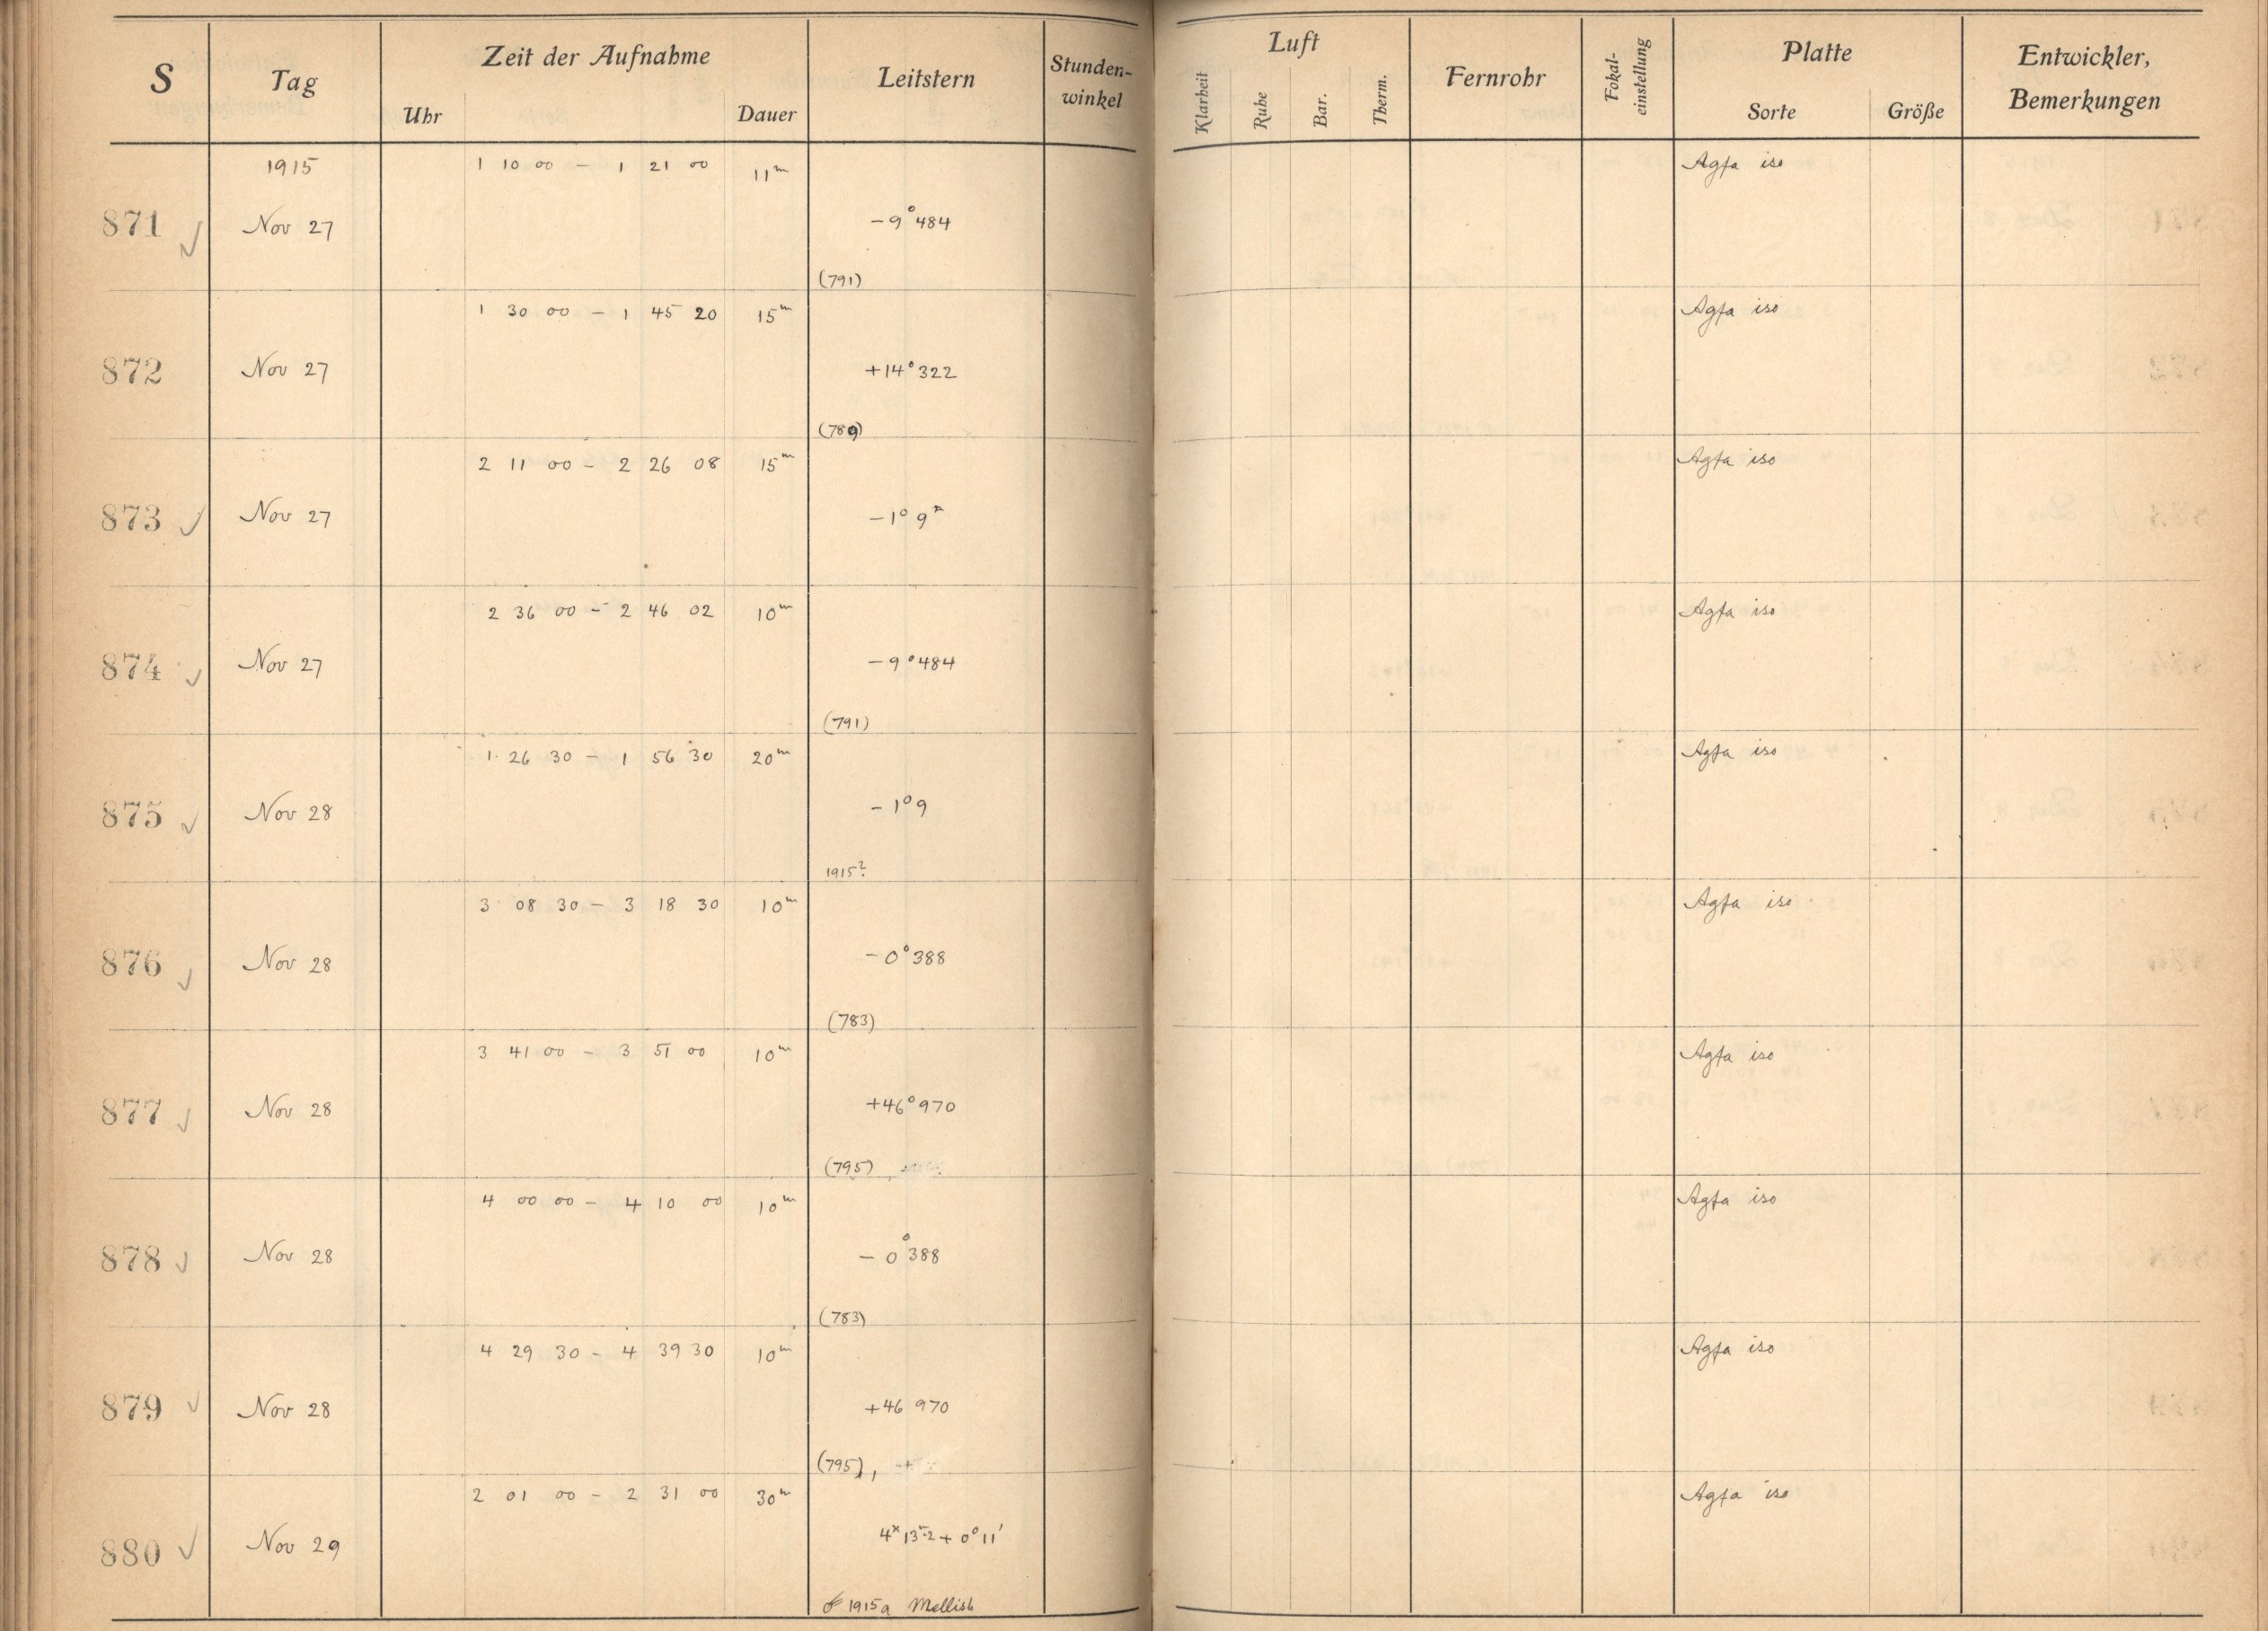 S Tag Zeit der Aufnahme Leitstern Stunden-winkel Luft Fernrohr Fokal-einstellung Platte Entwickler, Bemerkungen
Uhr Dauer Klarheit Ruhe Bar. Therm. Sorte Größe
1915 1 10 00 – 1 21 00 11m Agfa iso
871 Nov 27 –9°484
(791)
1 30 00 – 1 45 20 15m Agfa iso
872 Nov 27 +14°322
(789)
2 11 00 – 2 26 08 15m Agfa iso
873 Nov 27 –1° 9
2 36 00 – 2 46 02 10m Agfa iso
874 Nov 27 –9°484
(791)
1 26 30 – 1 56 30 20m Agfa iso
875 Nov 28 –1°9
1915?
3 08 30 – 3 18 30 10m Agfa iso
876 Nov 28 –0°388
(783)
3 41 00 – 3 51 00 10m Agfa iso
877 Nov 28 +46°970
(795)
4 00 00 – 4 10 00 10m Agfa iso
878 Nov 28 –0°388
(783)
4 29 30 – 4 39 30 10m Agfa iso
879 Nov 28 +46 970
(795),
2 01 00 – 2 31 00 30m Agfa iso
880 Nov 29 13m.2 + 0°11'
1915a Mellish